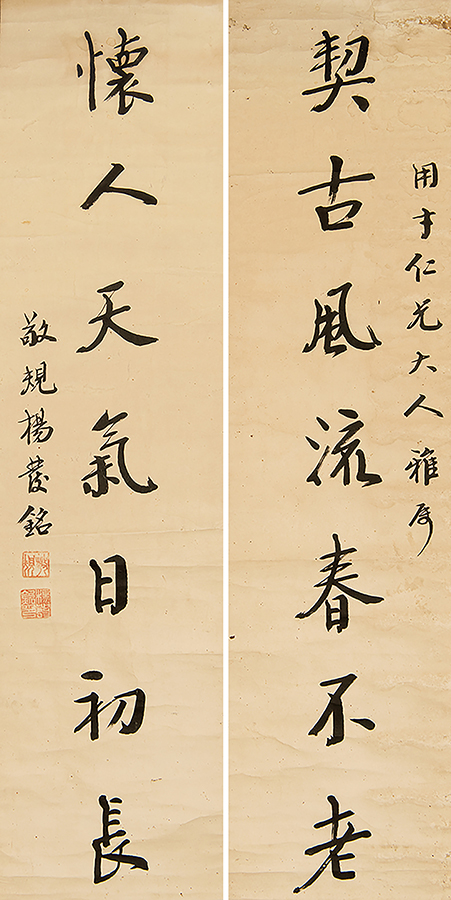 用才仁兄大人雅属
契古風流春不老
懷人天氣日初長
敬規楊發銘